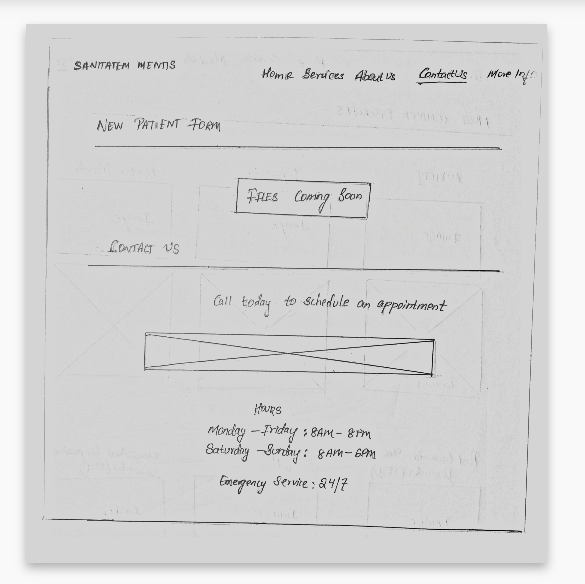 SANITATEM MENTIS
Home Services About us Contact Us More Info
NEW PATIENT FORM
FILES Coming Soon
CONTACT US
Call today to schedule an appointment
HOURS
Monday - Friday : 8AM - 8PM
Saturday - Sunday : 8AM - 6PM
Emergency Service : 24/7